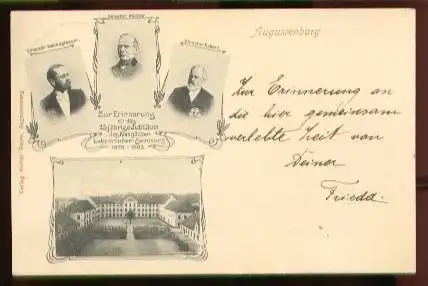 Augustenburg
Direktor Eckert.
Zur Erinnerung
an das
25jährige Jubiläum
des Königlichen
Lehrerinnen-Seminars
1878 - 1903.
Zur Erinnerung an
die hier gemeinsam
verlebte Zeit von
Deiner
Frieda.